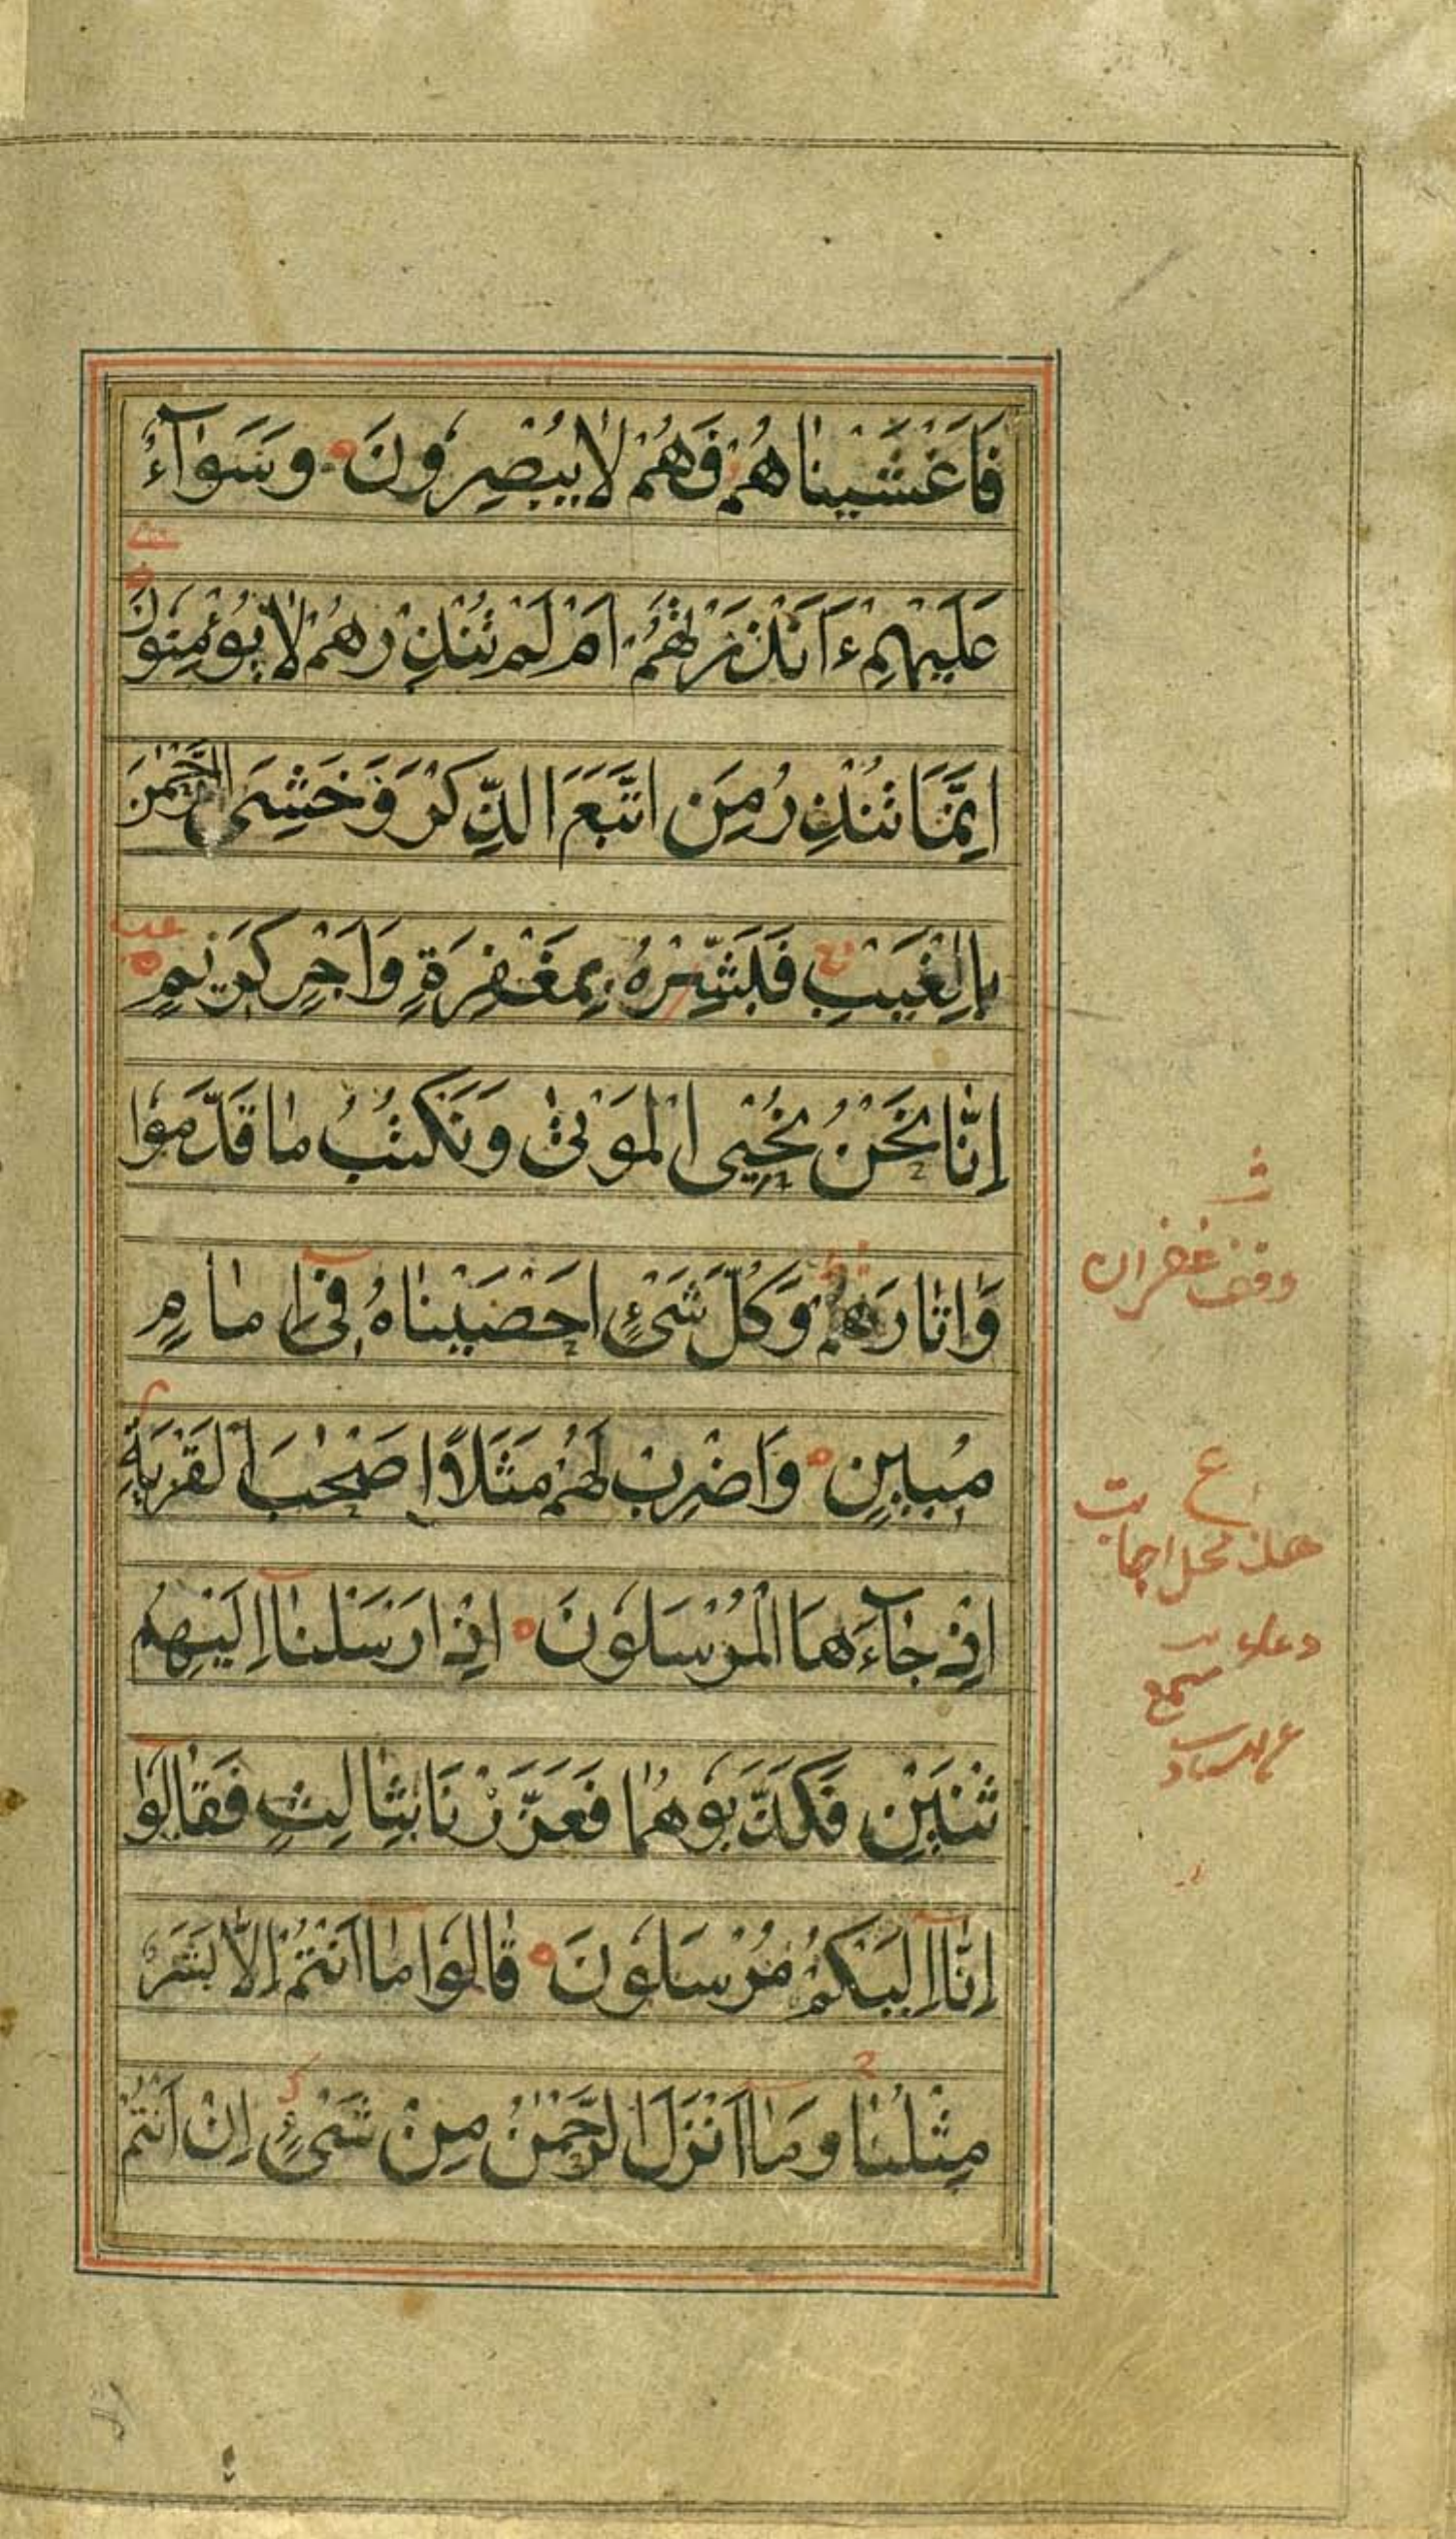 فَاَغْشَيْنَاهُمْ فَهُمْ لَا يُبْصِرُونَ وَسَوَآءٌ
عَلَيْهِمْ ءَاَنْذَرْتَهُمْ اَمْ لَمْ تُنْذِرْهُمْ لَا يُؤْمِنُونَ
اِنَّمَا تُنْذِرُ مَنِ اتَّبَعَ الذِّكْرَ وَخَشِىَ الرَّحْمٰنَ
بِالْغَيْبِ فَبَشِّرْهُ بِمَغْفِرَةٍ وَاَجْرٍ كَرِيْمٍ
اِنَّا نَحْنُ نُحْيِى الْمَوْتٰى وَنَكْتُبُ مَا قَدَّمُوْا
وَاٰثَارَهُمْ وَكُلَّ شَىْءٍ اَحْصَيْنَاهُ فِىْ اِمَامٍ
مُبِيْنٍ وَاضْرِبْ لَهُمْ مَثَلًا اَصْحٰبَ الْقَرْيَةِ
اِذْ جَآءَهَا الْمُرْسَلُوْنَ اِذْ اَرْسَلْنَآ اِلَيْهِمُ
اثْنَيْنِ فَكَذَّبُوْهُمَا فَعَزَّزْنَا بِثَالِثٍ فَقَالُوْٓا
اِنَّآ اِلَيْكُمْ مُرْسَلُوْنَ قَالُوْا مَآ اَنْتُمْ اِلَّا بَشَرٌ
مِثْلُنَا وَمَآ اَنْزَلَ الرَّحْمٰنُ مِنْ شَىْءٍ اِنْ اَنْتُمْ
وقف غفران
ع
هذ محل اجابت